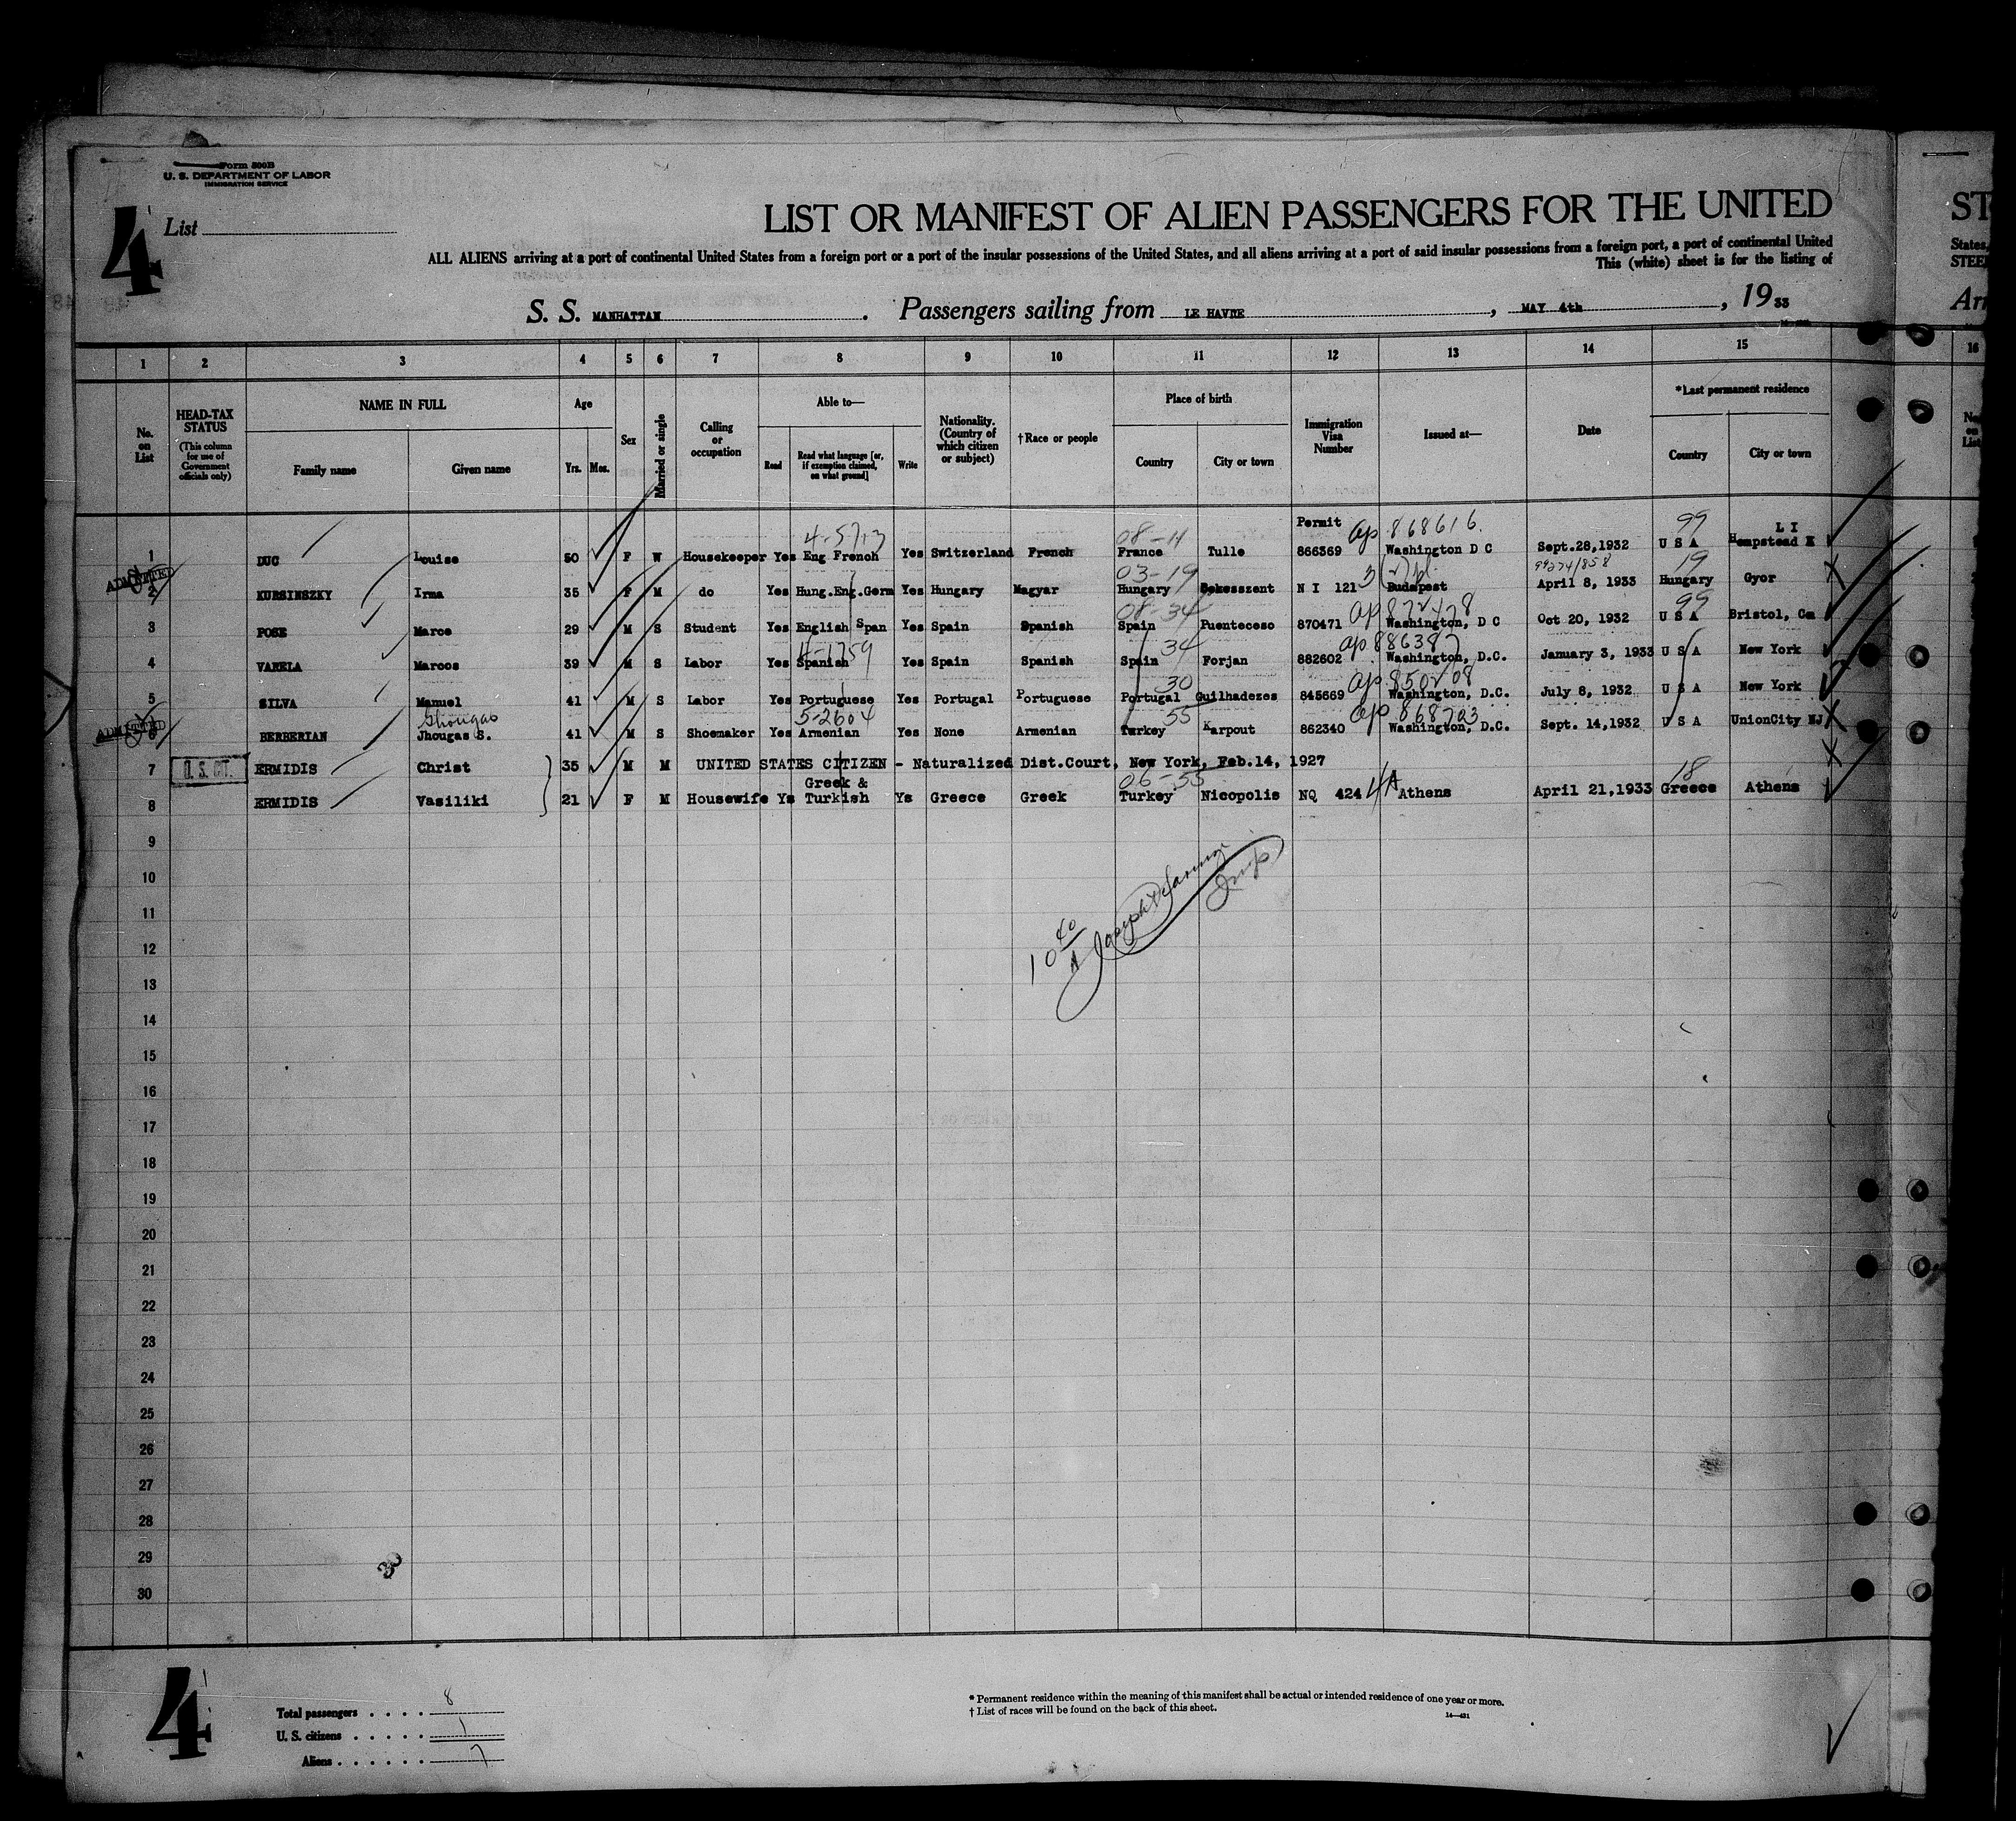 Form 500B
U. S. DEPARTMENT OF LABOR
IMMIGRATION SERVICE
4
List
LIST OR MANIFEST OF ALIEN PASSENGERS FOR THE UNITED
ST
ALL ALIENS arriving at a port of continental United States from a foreign port or a port of the insular possessions of the United States, and all aliens arriving at a port of said insular possessions from a foreign port, a port of continental United
States,
This (white) sheet is for the listing of
STEE
S. S. MANHATTAN. Passengers sailing from LE HAVRE, MAY 4th, 1933
Arr
1 2 3 4 5 6 7 8 9 10 11 12 13 14 15 16
No. on List
HEAD-TAX STATUS (This column for use of Government officials only)
NAME IN FULL
Family name Given name
Age
Yrs. Mos.
Sex
Married or single
Calling or occupation
Able to—
Read Read what language [or, if exemption claimed, on what ground] Write
Nationality. (Country of which citizen or subject)
†Race or people
Place of birth
Country City or town
Immigration Visa Number
Issued at—
Date
*Last permanent residence
Country City or town
No. on List
4-5/13 08-11 Permit ap 868616. 99 L I
1 DUC Louise 50 F W Housekeeper Yes Eng French Yes Switzerland French France Tulle 866369 Washington D C Sept.28,1932 U S A Hempstead
ADMITTED 03-19 99274/858 19
2 KURSINSZKY Irma 35 F M do Yes Hung.Eng.Germ Yes Hungary Magyar Hungary N I 1213 Budapest April 8, 1933 Hungary Gyor
08-34 99
3 POSE Marce 29 M S Student Yes English Span Yes Spain Spanish Spain Puenteceso 870471 Washington, D C Oct 20, 1932 U S A Bristol, Cn
4-1759 34 ap 886387
4 VARELA Marcos 39 M S Labor Yes Spanish Yes Spain Spanish Spain Forjan 882602 Washington, D.C. January 3, 1933 U S A New York
30 ap 850208
5 SILVA Manuel 41 M S Labor Yes Portuguese Yes Portugal Portuguese Portugal Guilhadezes 845669 Washington, D.C. July 8, 1932 U S A New York
ADMITTED Ghougas 5-2604 55 ap 868703
6 BERBERIAN Jhougas S. 41 M S Shoemaker Yes Armenian Yes None Armenian Turkey Karpout 862340 Washington, D.C. Sept. 14,1932 U S A UnionCity NJ
7 U.S. CT. ERMIDIS Christ 35 M M UNITED STATES CITIZEN - Naturalized Dist.Court, New York, Feb.14, 1927
Greek & 06-55 18
8 ERMIDIS Vasiliki 21 F M Housewife Ys Turkish Ys Greece Greek Turkey Nicopolis NQ 4244 Athens April 21,1933 Greece Athens
9
10
11
12
10 40 A Joseph Insp
13
14
15
16
17
18
19
20
21
22
23
24
25
26
27
28
29
30
30
4
Total passengers . . . . 8
U. S. citizens . . . . . 1
Aliens . . . . . . 7
* Permanent residence within the meaning of this manifest shall be actual or intended residence of one year or more.
† List of races will be found on the back of this sheet.
14—421